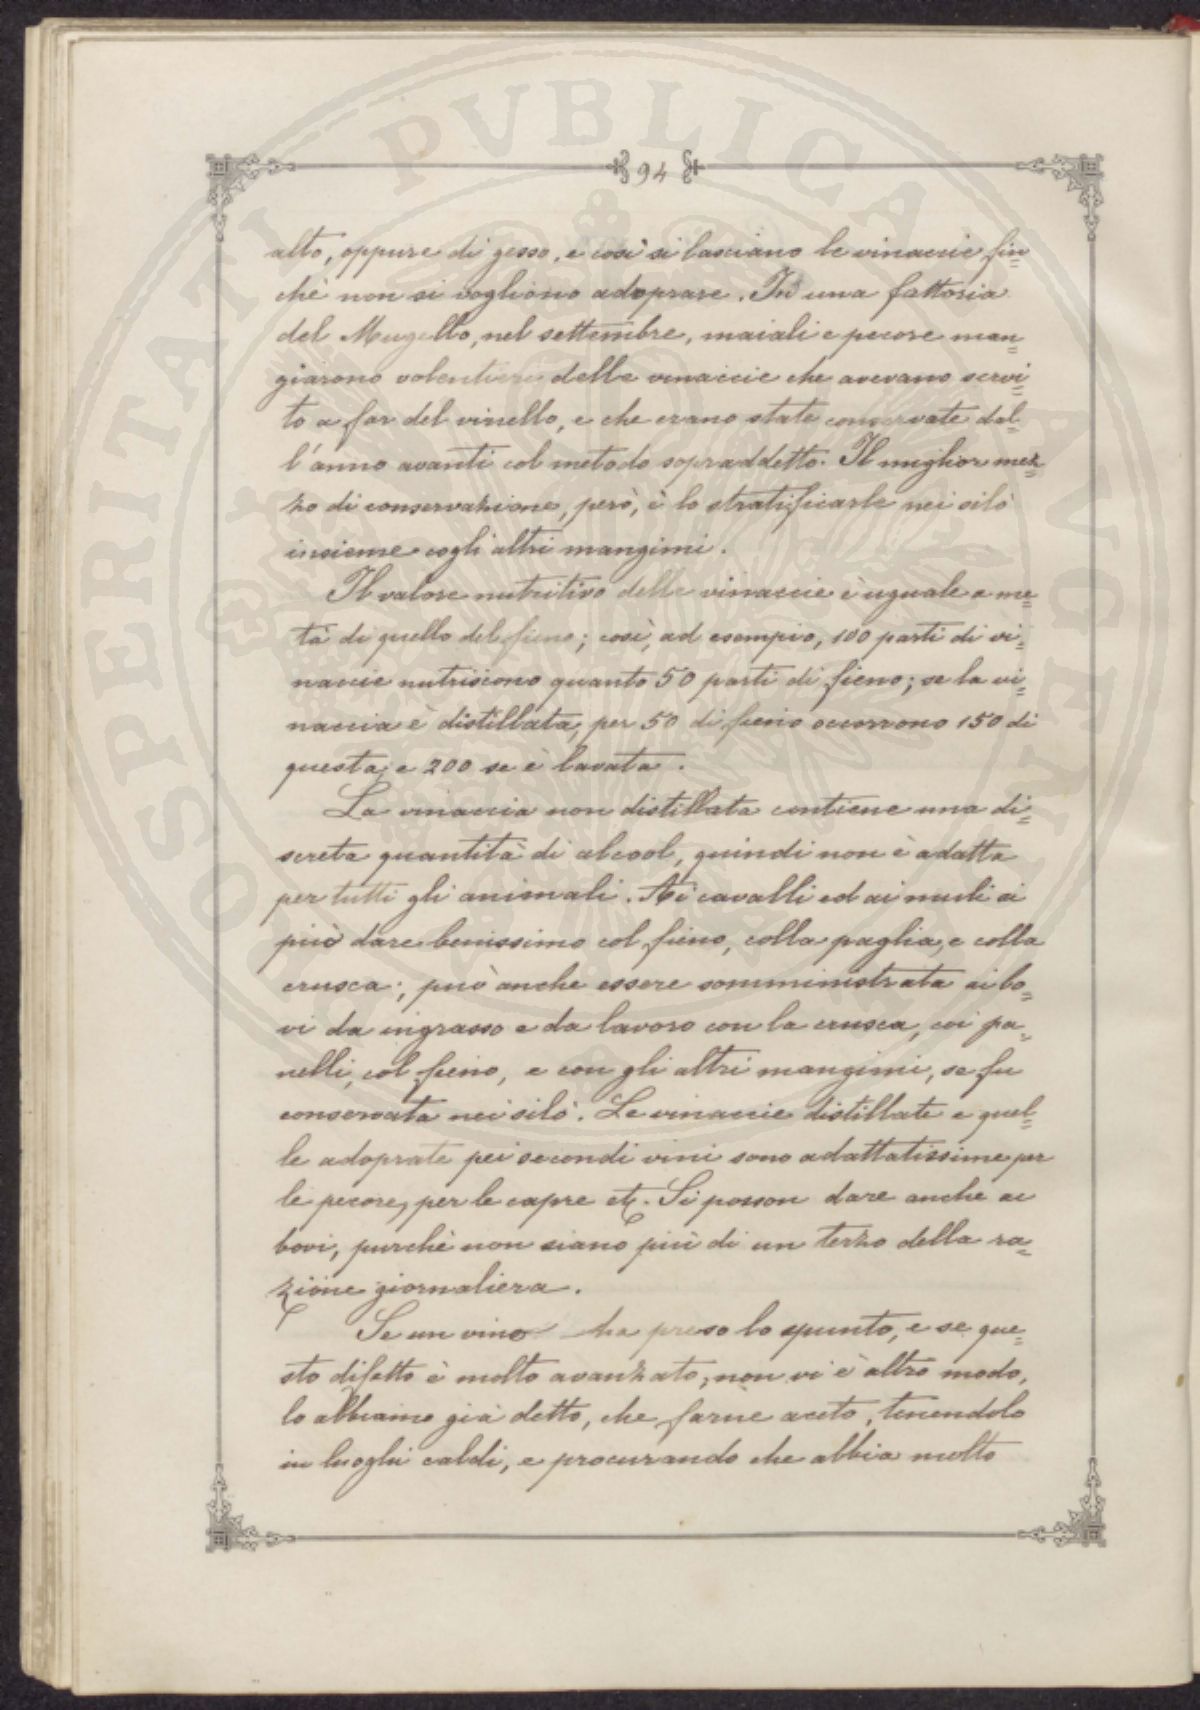 94
alto, oppure di gesso, e così si lasciano le vinaccie fin=
chè non si vogliono adoprare. In una fattoria
del Mugello, nel settembre, maiali e pecore man=
giarono volentieri delle vinaccie che avevano servi=
to a far del vinello, e che erano state conservate dal=
l'anno avanti col metodo sopraddetto. Il miglior mez=
zo di conservazione, però, è lo stratificarle nei silò
insieme cogli altri mangimi.
Il valore nutritivo delle vinaccie è uguale a me=
tà di quello del fieno; così, ad esempio, 100 parti di vi=
naccie nutriscono quanto 50 parti di fieno; se la vi=
naccia è distillata, per 50 di fieno occorrono 150 di
questa, e 200 se è lavata.
La vinaccia non distillata contiene una di=
screta quantità di alcool, quindi non è adatta
per tutti gli animali. Ai cavalli ed ai muli si
può dare benissimo col fieno, colla paglia, e colla
crusca; può anche essere somministrata ai bo=
vi da ingrasso e da lavoro con la crusca, coi pa=
nelli, col fieno, e con gli altri mangimi, se fu
conservata nei silò. Le vinaccie distillate e quel=
le adoprate pei secondi vini sono adattatissime per
le pecore, per le capre etc. Si posson dare anche ai
bovi, purchè non siano più di un terzo della ra=
zione giornaliera.
Se un vino ha preso lo spunto, e se que=
sto difetto è molto avanzato, non vi è altro modo,
lo abbiamo già detto, che farne aceto, tenendolo
in luoghi caldi, e procurando che abbia molto
SPERITATI PVBLICAE AVGENDAE